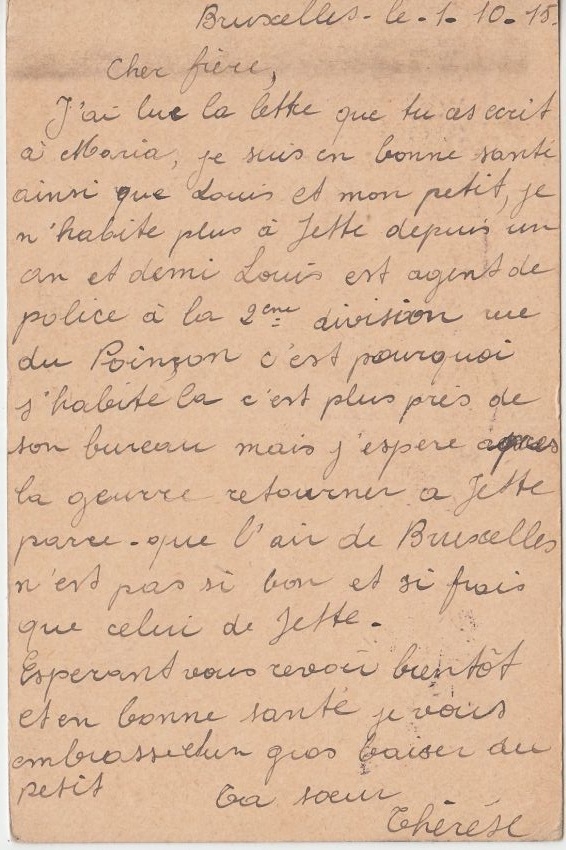 Bruxelles - le - 1 - 10 - 15.
Cher frère,
J'ai lue la lettre que tu as ecrit
à Maria, je suis en bonne santé
ainsi que Louis et mon petit, je
n'habite plus à Jette depuis un
an et demi Louis est agent de
police à la 2eme division rue
du Poinçon c'est pourquoi
j'habite la c'est plus près de
son bureau mais j'espere apres
la geurre retourner a Jette
parce-que l'air de Bruxelles
n'est pas si bon et si frais
que celui de Jette.
Esperant vous revoir bientôt
et en bonne santé je vous
embrasse et un gros baiser du
petit
Ta sœur
Thérése